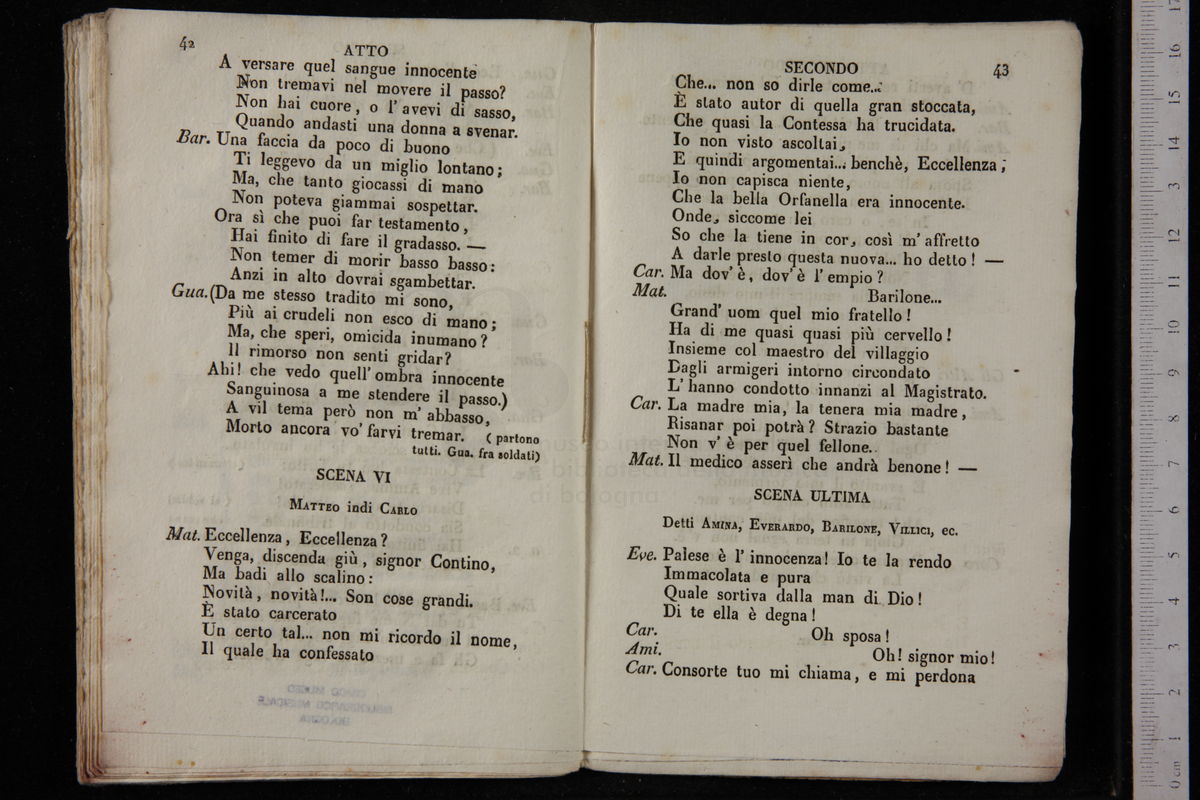 42
ATTO
A versare quel sangue innocente
Non tremavi nel movere il passo?
Non hai cuore, o l' avevi di sasso,
Quando andasti una donna a svenar.
Bar. Una faccia da poco di buono
Ti leggevo da un miglio lontano;
Ma, che tanto giocassi di mano
Non poteva giammai sospettar.
Ora sì che puoi far testamento,
Hai finito di fare il gradasso. —
Non temer di morir basso basso:
Anzi in alto dovrai sgambettar.
Gua. (Da me stesso tradito mi sono,
Più ai crudeli non esco di mano;
Ma, che speri, omicida inumano?
Il rimorso non senti gridar?
Ahi! che vedo quell' ombra innocente
Sanguinosa a me stendere il passo.)
A vil tema però non m' abbasso,
Morto ancora vo' farvi tremar. (partono
tutti. Gua. fra soldati)
SCENA VI
MATTEO indi CARLO
Mat. Eccellenza, Eccellenza?
Venga, discenda giù, signor Contino,
Ma badi allo scalino:
Novità, novità!... Son cose grandi.
È stato carcerato
Un certo tal... non mi ricordo il nome,
Il quale ha confessato
CIVICO MUSEO
BIBLIOGRAFICO MUSICALE
BOLOGNA
SECONDO
43
Che... non so dirle come...
È stato autor di quella gran stoccata,
Che quasi la Contessa ha trucidata.
Io non visto ascoltai,
E quindi argomentai... benchè, Eccellenza,
Io non capisca niente,
Che la bella Orfanella era innocente.
Onde, siccome lei
So che la tiene in cor, così m' affretto
A darle presto questa nuova... ho detto! —
Car. Ma dov' è, dov' è l' empio?
Mat. Barilone...
Grand' uom quel mio fratello!
Ha di me quasi quasi più cervello!
Insieme col maestro del villaggio
Dagli armigeri intorno circondato
L' hanno condotto innanzi al Magistrato.
Car. La madre mia, la tenera mia madre,
Risanar poi potrà? Strazio bastante
Non v' è per quel fellone..
Mat. Il medico asserì che andrà benone! —
SCENA ULTIMA
Detti AMINA, EVERARDO, BARILONE, VILLICI, ec.
Eve. Palese è l' innocenza! Io te la rendo
Immacolata e pura
Quale sortiva dalla man di Dio!
Di te ella è degna!
Car. Oh sposa!
Ami. Oh! signor mio!
Car. Consorte tuo mi chiama, e mi perdona